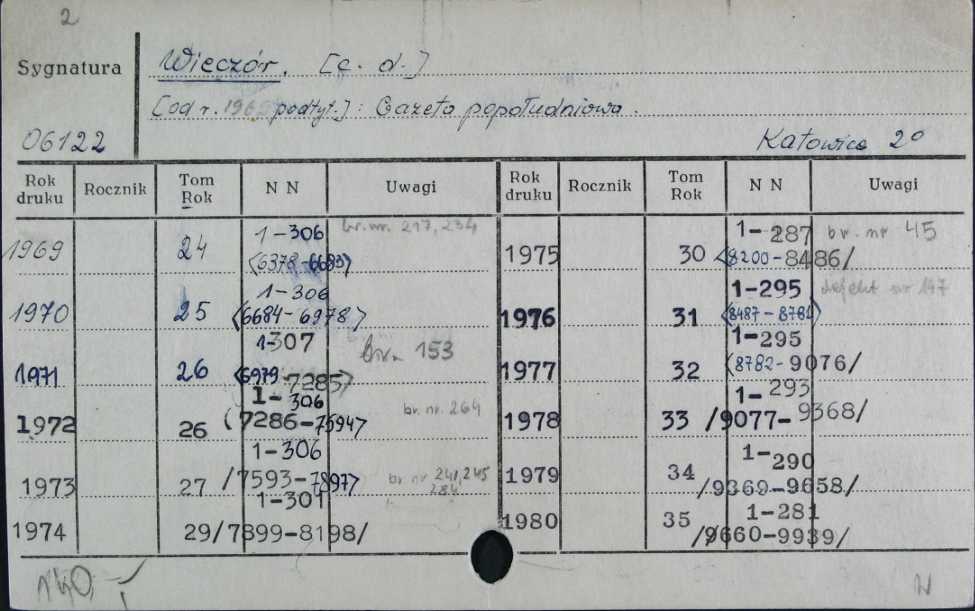 2
Sygnatura
Wieczór. [c. d.]
[od r. 196 podtyt.]: Gazeta popołudniowa.
06122
Katowice 2°
Rok druku Rocznik Tom Rok N N Uwagi Rok druku Rocznik Tom Rok N N Uwagi
1969 24 1-306 br. nr. 217, 234 1975 30 1-287 br. nr 45
<6378-6683> <8200-8486/
1970 25 1-306 1976 31 1-295 defekt nr 147
<6684-6978> <8487-8781>
1971 26 1-307 br. 153 1977 32 1-295
<6979-7285> <8782-9076/
1972 26 1-306 br. nr. 264 1978 33 1-293
(7286-7594> /9077-9368/
1973 27 1-306 br nr 241,245 1979 34 1-290
/7593-7897> 284 /9369-9658/
1974 29 1-301 1980 35 1-281
/7899-8198/ /9660-9939/
140,